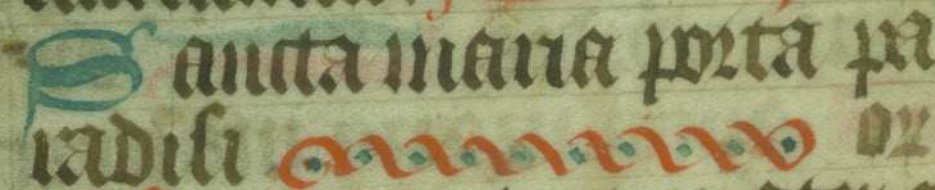 Sancta maria porta pa
radisi or